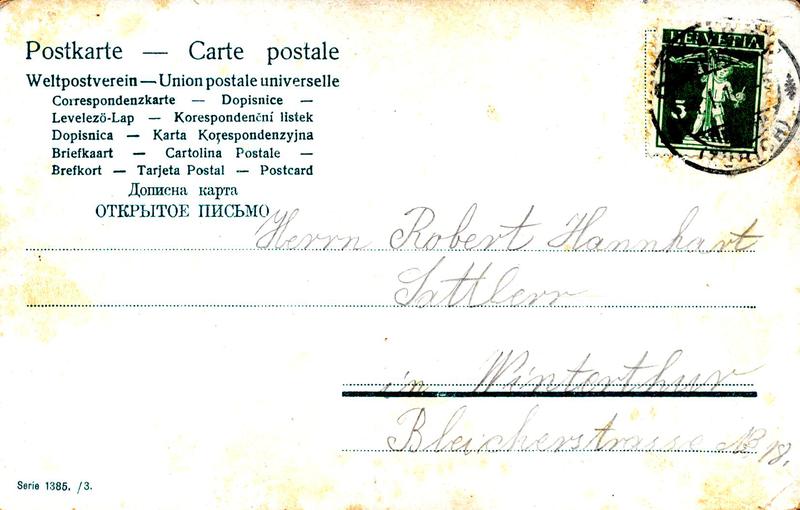 Postkarte — Carte postale
Weltpostverein — Union postale universelle
Correspondenzkarte — Dopisnice —
Levelező-Lap — Korespondenční listek
Dopisnica — Karta Korespondenzyjna
Briefkaart — Cartolina Postale —
Brefkort — Tarjeta Postal — Postcard
Дописна карта
ОТКРЫТОЕ ПИСЬМО
HELVETIA
5
Herrn Robert Hannhart
Sattlerr
in Winterthur
Bleicherstrasse No 18.
Serie 1385. /3.